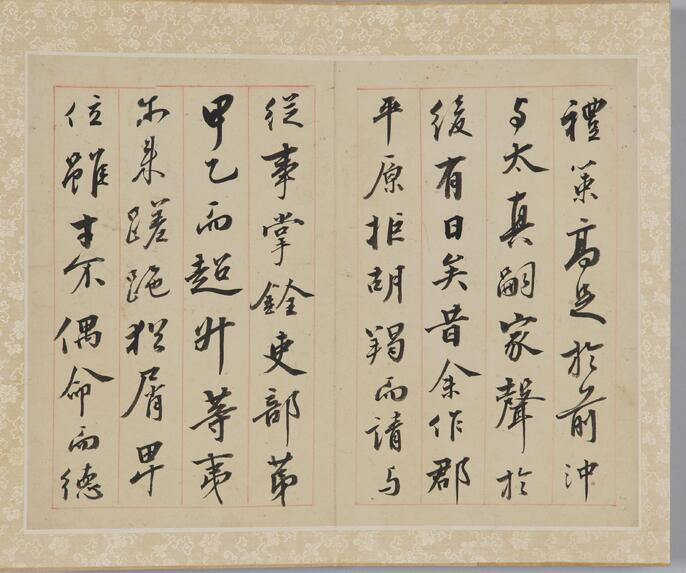 禮策高足於前沖
与太真嗣家聲於
後有日矣昔余作郡
平原拒胡羯而請与
從事掌銓吏部苐
甲乙而超升等夷
尓来蹉跎猶屑卑
位雖才不偶命而德